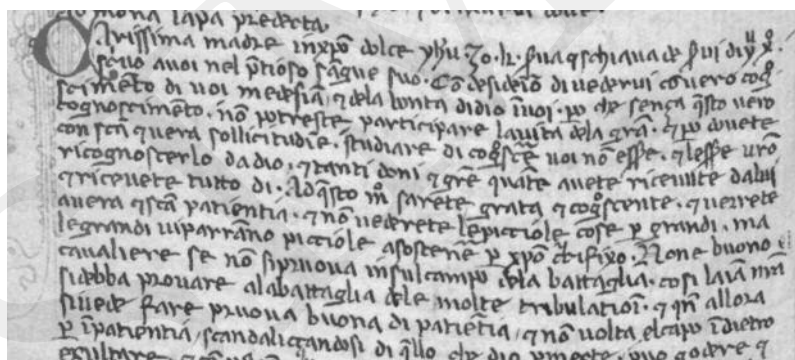 mona lapa predecta
Carissima madre inxpo dolce yhu. Io. k. serua q schiaua de serui di yu xo.
scriuo auoi nel ptioso sangue suo. Co desiderio di uederui co uero cog
scimeto di uoi medesia, 7 dela bonta didio i uoi. po che sença qsto uero
cognoscimeto. no potreste participare lauita dela gra. 7 po douete
con scta 7 uera sollicitudie. studiare di cogsce uoi no esse. 7 lesse uro
ricognoscerlo dadio. 7 tanti doni 7 gre quate auete riceuute dalui
7 riceuete tutto di. Ad qsto mo sarete grata 7 cogscente. 7 uerrete
auera 7 scta patientia. 7 no uederete lepicciole cose p grandi. ma
legrandi uiparrano picciole asostene p xpo crocifixo. None buono
caualiere se no sipruoua insulcampo dela battaglia. cosi laia nra
sidebba prouare alabattaglia dele molte tribulatioi. 7 qn allora
siuede fare pruoua buona di patietia, 7 no uolta elcapo idietro
p ipatientia, scandaliççandosi di qllo che dio pmecte, puo godere 7
exultare